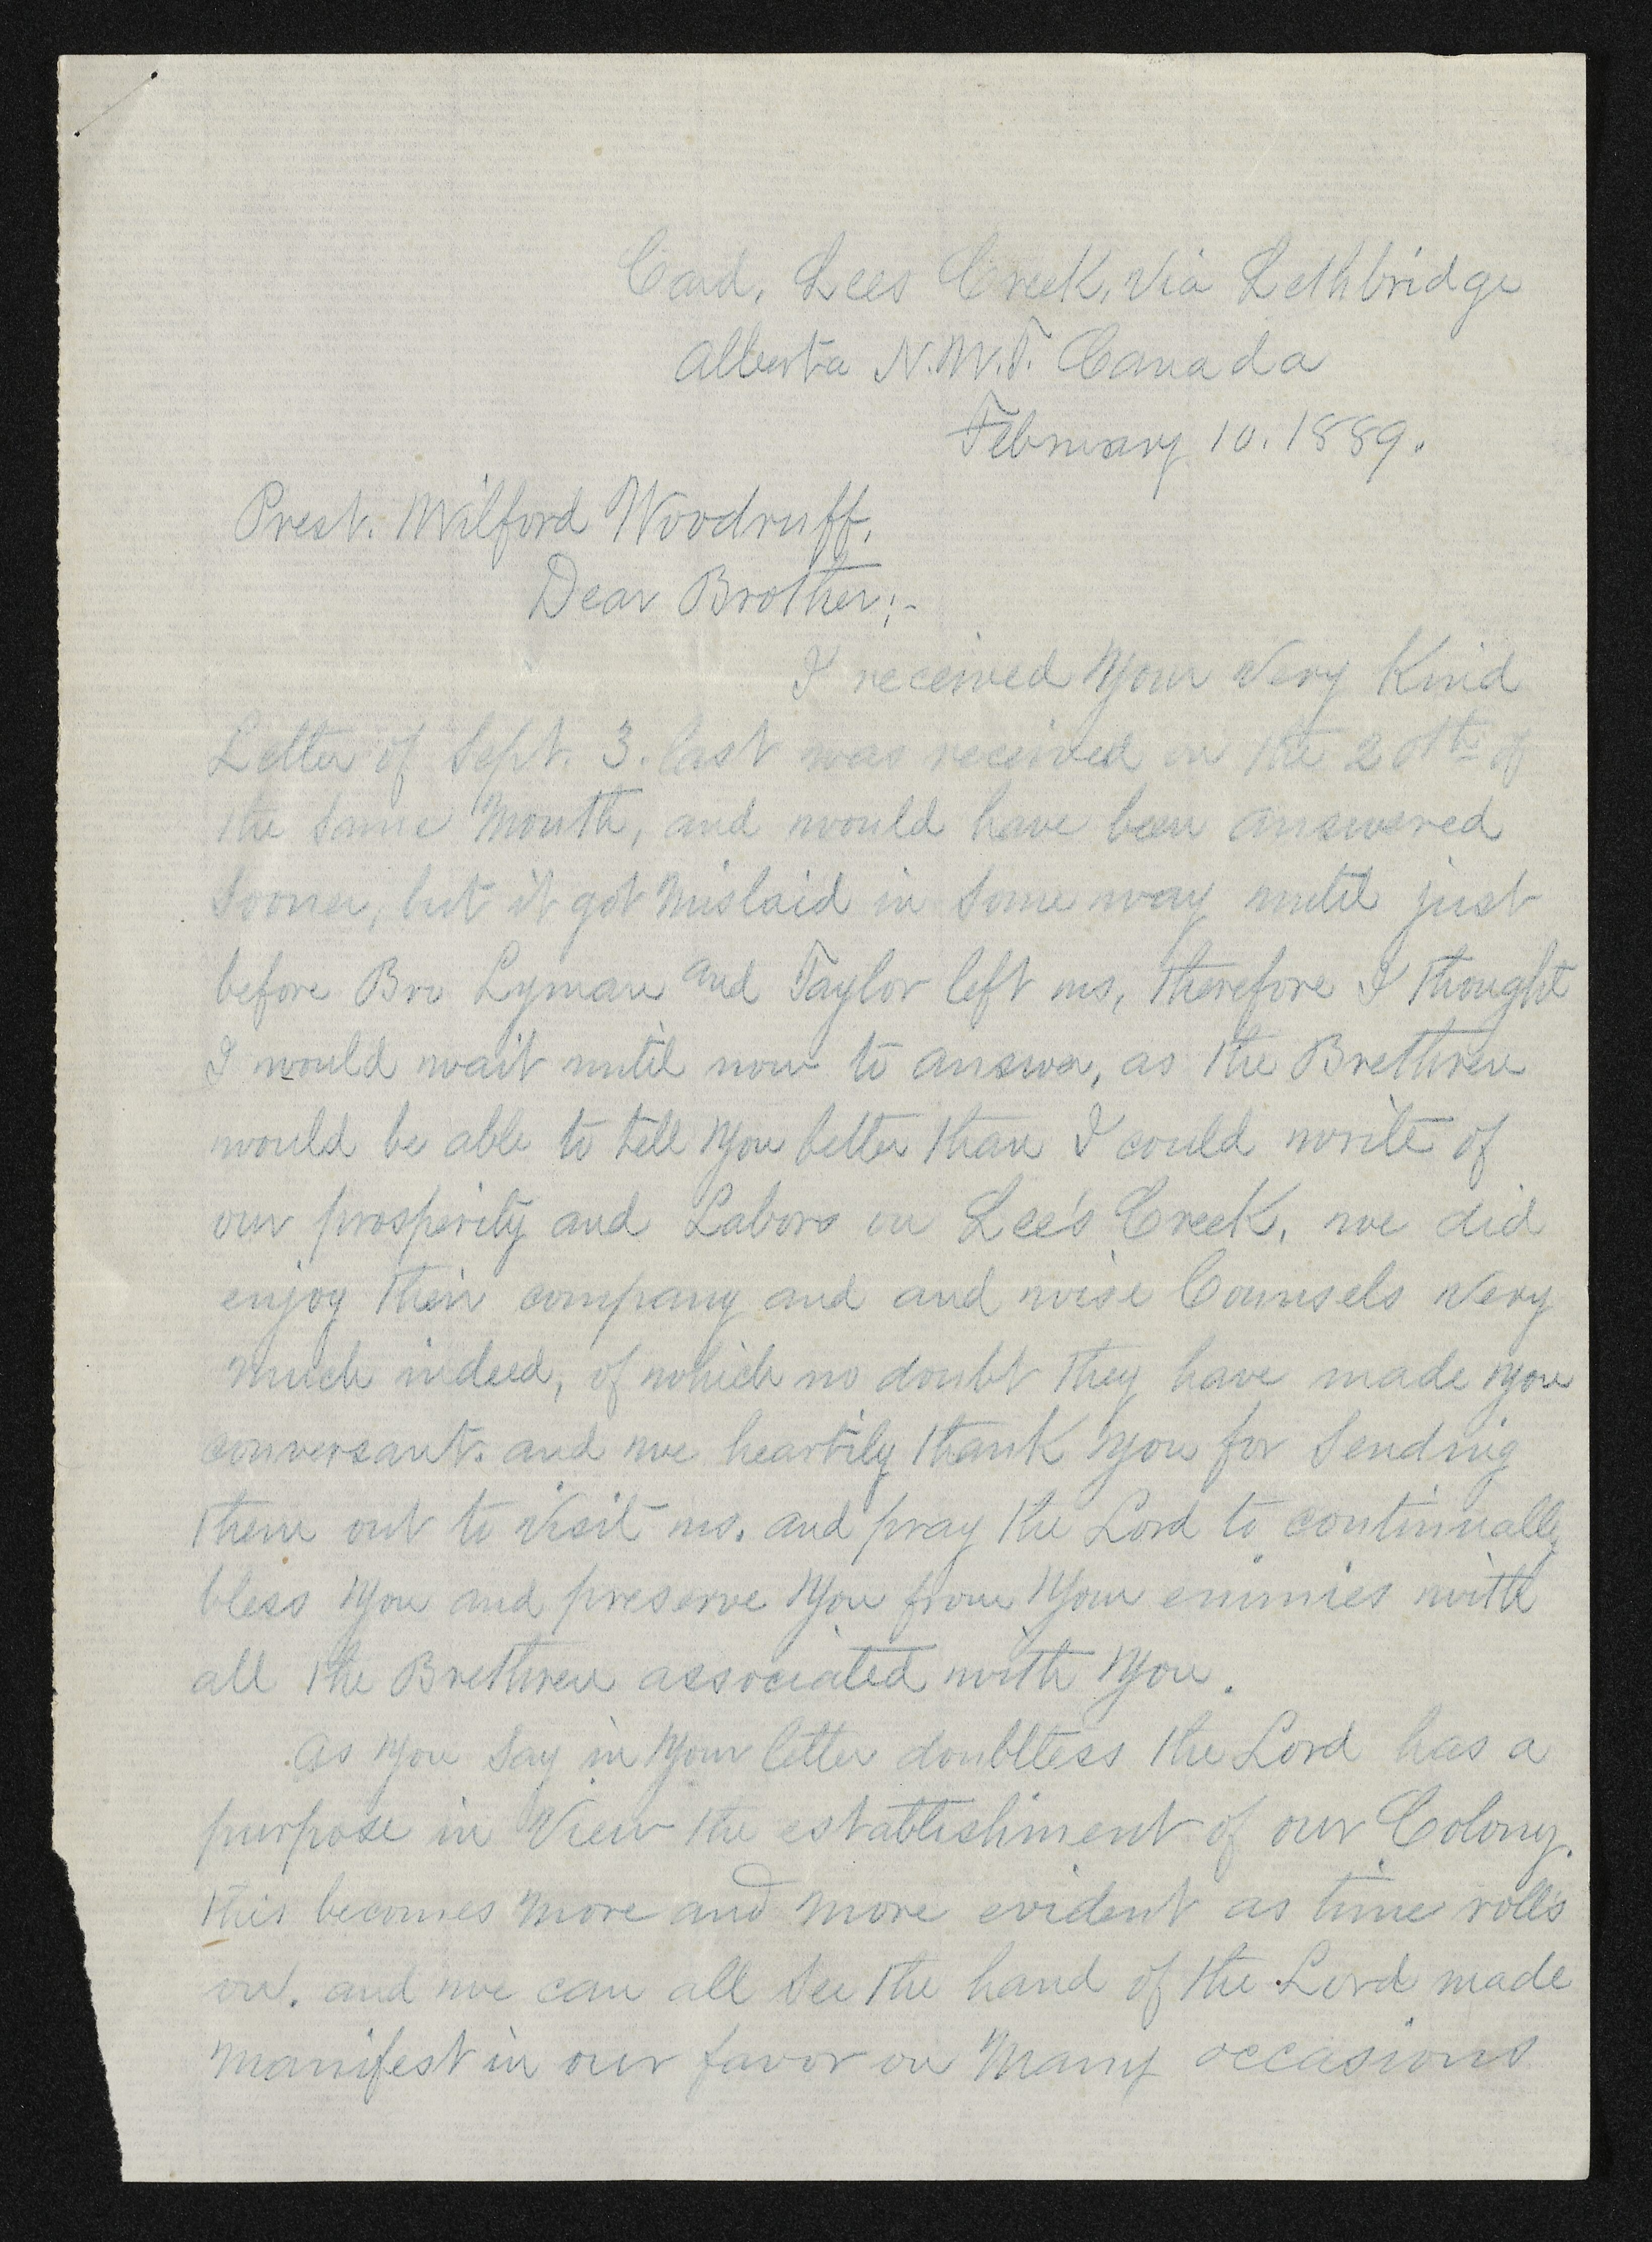 Card, Lees Creek, via Lethbridge
Alberta N.W.T. Canada
February 10. 1889.
Prest. Wilford Woodruff.
Dear Brother;-
I received Your very Kind
Letter of Sept. 3. last was received on the 20th of
the same Month, and would have been answered
sooner, but it got mislaid in some way until just
before Bro Lyman and Taylor left us, therefore I thought
I would wait until now to answer, as the Brethren
would be able to tell You better than I could write of
our prosperity and Labors on Lee's Creek, we did
enjoy their company and and wise Counsels very
much indeed, of which no doubt they have made you
conversant. and we heartily thank You for sending
them out to visit us. and pray the Lord to continually
bless You and preserve You from Your enimies with
all the Brethren associated with You.
As You say in Your letter doubltess the Lord has a
purpose in View the establishment of our Colony.
this becomes more and more evident as time rolls
on. and we can all see the hand of the Lord made
manifest in our favor on Many occasions